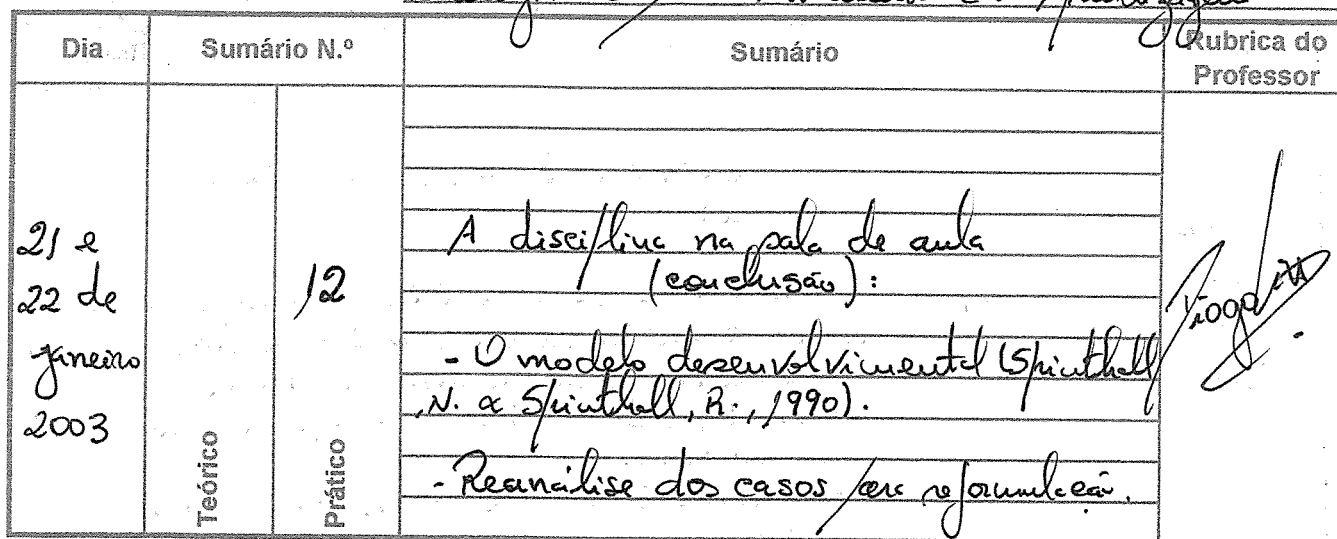 Dia
Sumário N.º
Sumário
Rubrica do
Professor
21 e
22 de
Janeiro
2003
Teórico
12
Prático
A disciplina na sala de aula
(conclusão):
- O modelo desenvolvimental (Sprinthall,
N. & Sprinthall, R., 1990).
- Reanálise dos casos para reformulação.